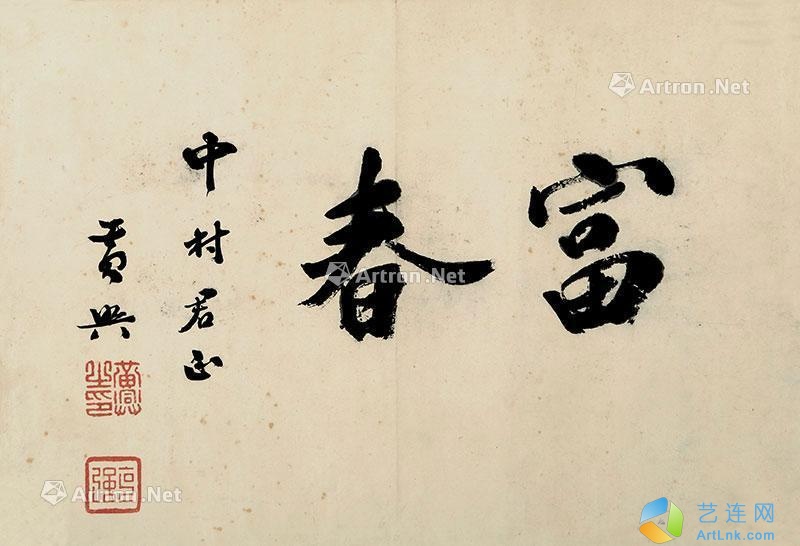 富春
中村君正
黄興
黄興之印
克強
Artron.Net
Artron.Net
Artron.Net
艺连网
ArtLnk.com